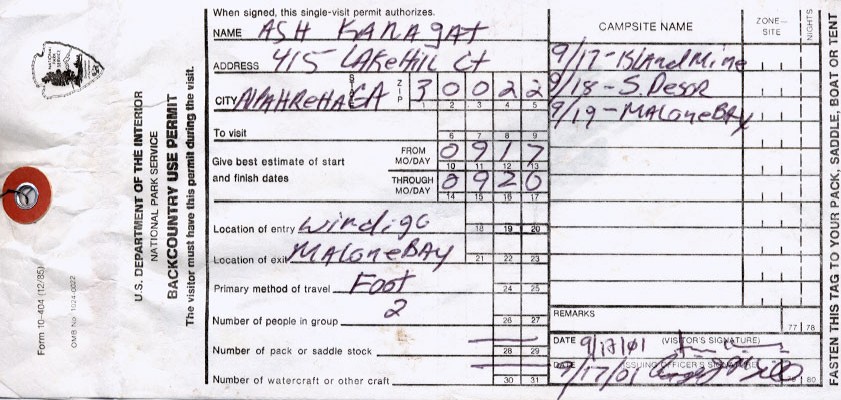 When signed, this single-visit permit authorizes.
NAME ASH KANAGAT
ADDRESS 415 LAKeHill Ct
CITY AlPAHReTtA STATE GA ZIP 3 0 0 2 2
1 2 3 4 5
To visit
6 7 8 9
Give best estimate of start and finish dates
FROM MO/DAY 0 9 1 7
10 11 12 13
THROUGH MO/DAY 0 9 2 0
14 15 16 17
Location of entry Windigo
18 19 20
Location of exit MALoneBAY
21 22 23
Primary method of travel Foot
24 25
Number of people in group 2
26 27
Number of pack or saddle stock —
28 29
Number of watercraft or other craft —
30 31
CAMPSITE NAME
ZONE—SITE
NIGHTS
9/17-IslAndMine
9/18-S.Desor
9/19-MALoneBAy
REMARKS
77 78
DATE 9/17/01 (VISITOR'S SIGNATURE)
DATE 9/17/01 (ISSUING OFFICER'S SIGNATURE)
80
U.S. DEPARTMENT OF THE INTERIOR
NATIONAL PARK SERVICE
BACKCOUNTRY USE PERMIT
The visitor must have this permit during the visit.
Form 10-404 (12/85)
OMB No. 1024-0022
NATIONAL PARK SERVICE
FASTEN THIS TAG TO YOUR PACK, SADDLE, BOAT OR TENT